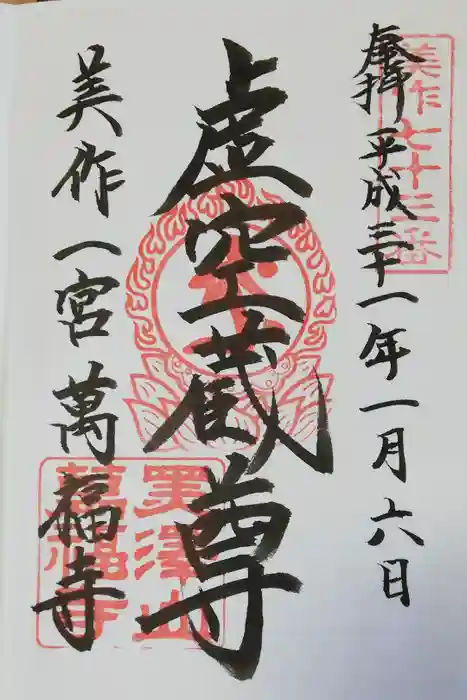 美作七十三番
奉拝 平成三十一年一月六日
虚空蔵尊
美作一宮 萬福寺
黒澤山
萬福寺